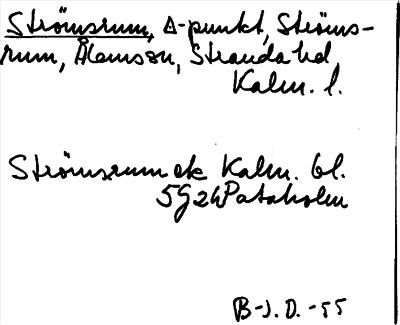 Strömsrum, Δ-punkt, Ströms-
rum, Ålemsson, Stranda hd
Kalm. l.
Strömsrum ek Kalm. bl.
5G2h Pataholm
B-J.D.-55